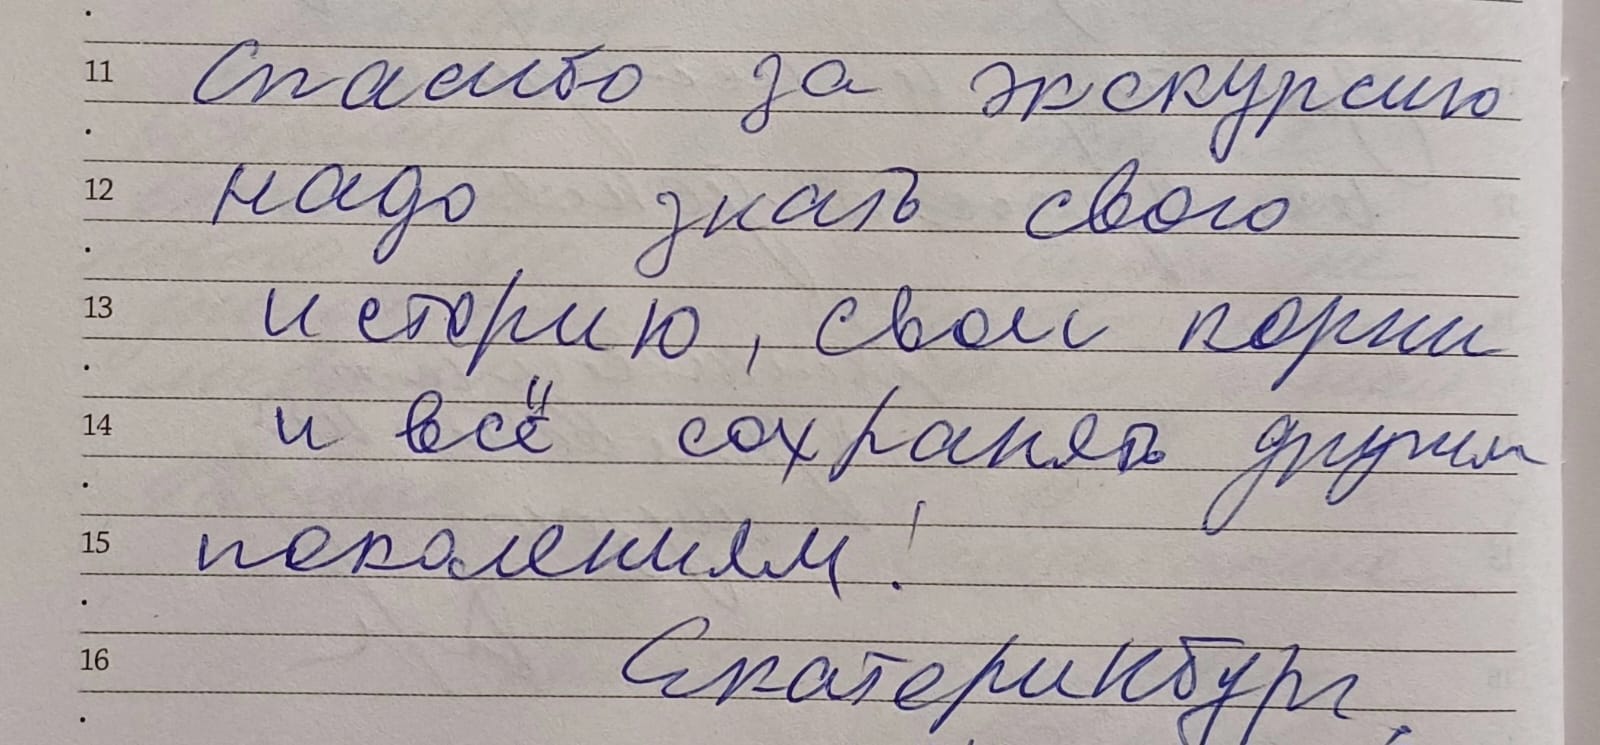 11 Спасибо за экскурсию
12 надо знать свого
13 историю, свои корни
14 и всё сохранять другим
15 поколениям!
16 Екатеринбург.